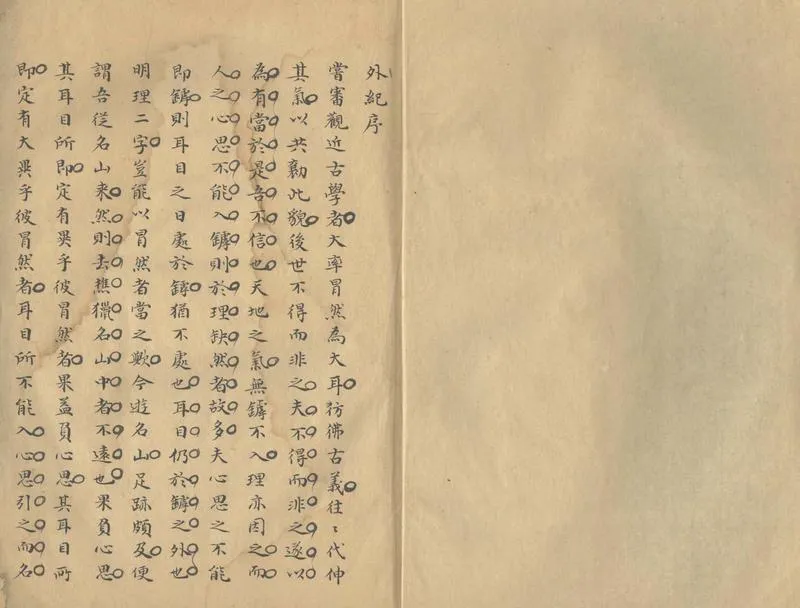 外紀序
嘗審觀近古學者大率冒然為大耳彷彿古義往〻代伸
其氣以共勷此貌後世不得而非之夫不得而非之遂以
為有當於是吾不信也天地之氣無罅不入理亦因之而
人之心思不能入罅則於理缺然者故多夫心思之不能
即罅則耳目之日處於罅猶不處也耳目仍於罅之外也
明理二字豈能以冒然者當之歟今遊名山足跡頗及便
謂吾從名山来然則去樵獵名山中者不遠也果負心思
其耳目所即定有異乎彼冒然者果益負心思其耳目所
即定有大異乎彼冒然者耳目所不能入心思引之而名